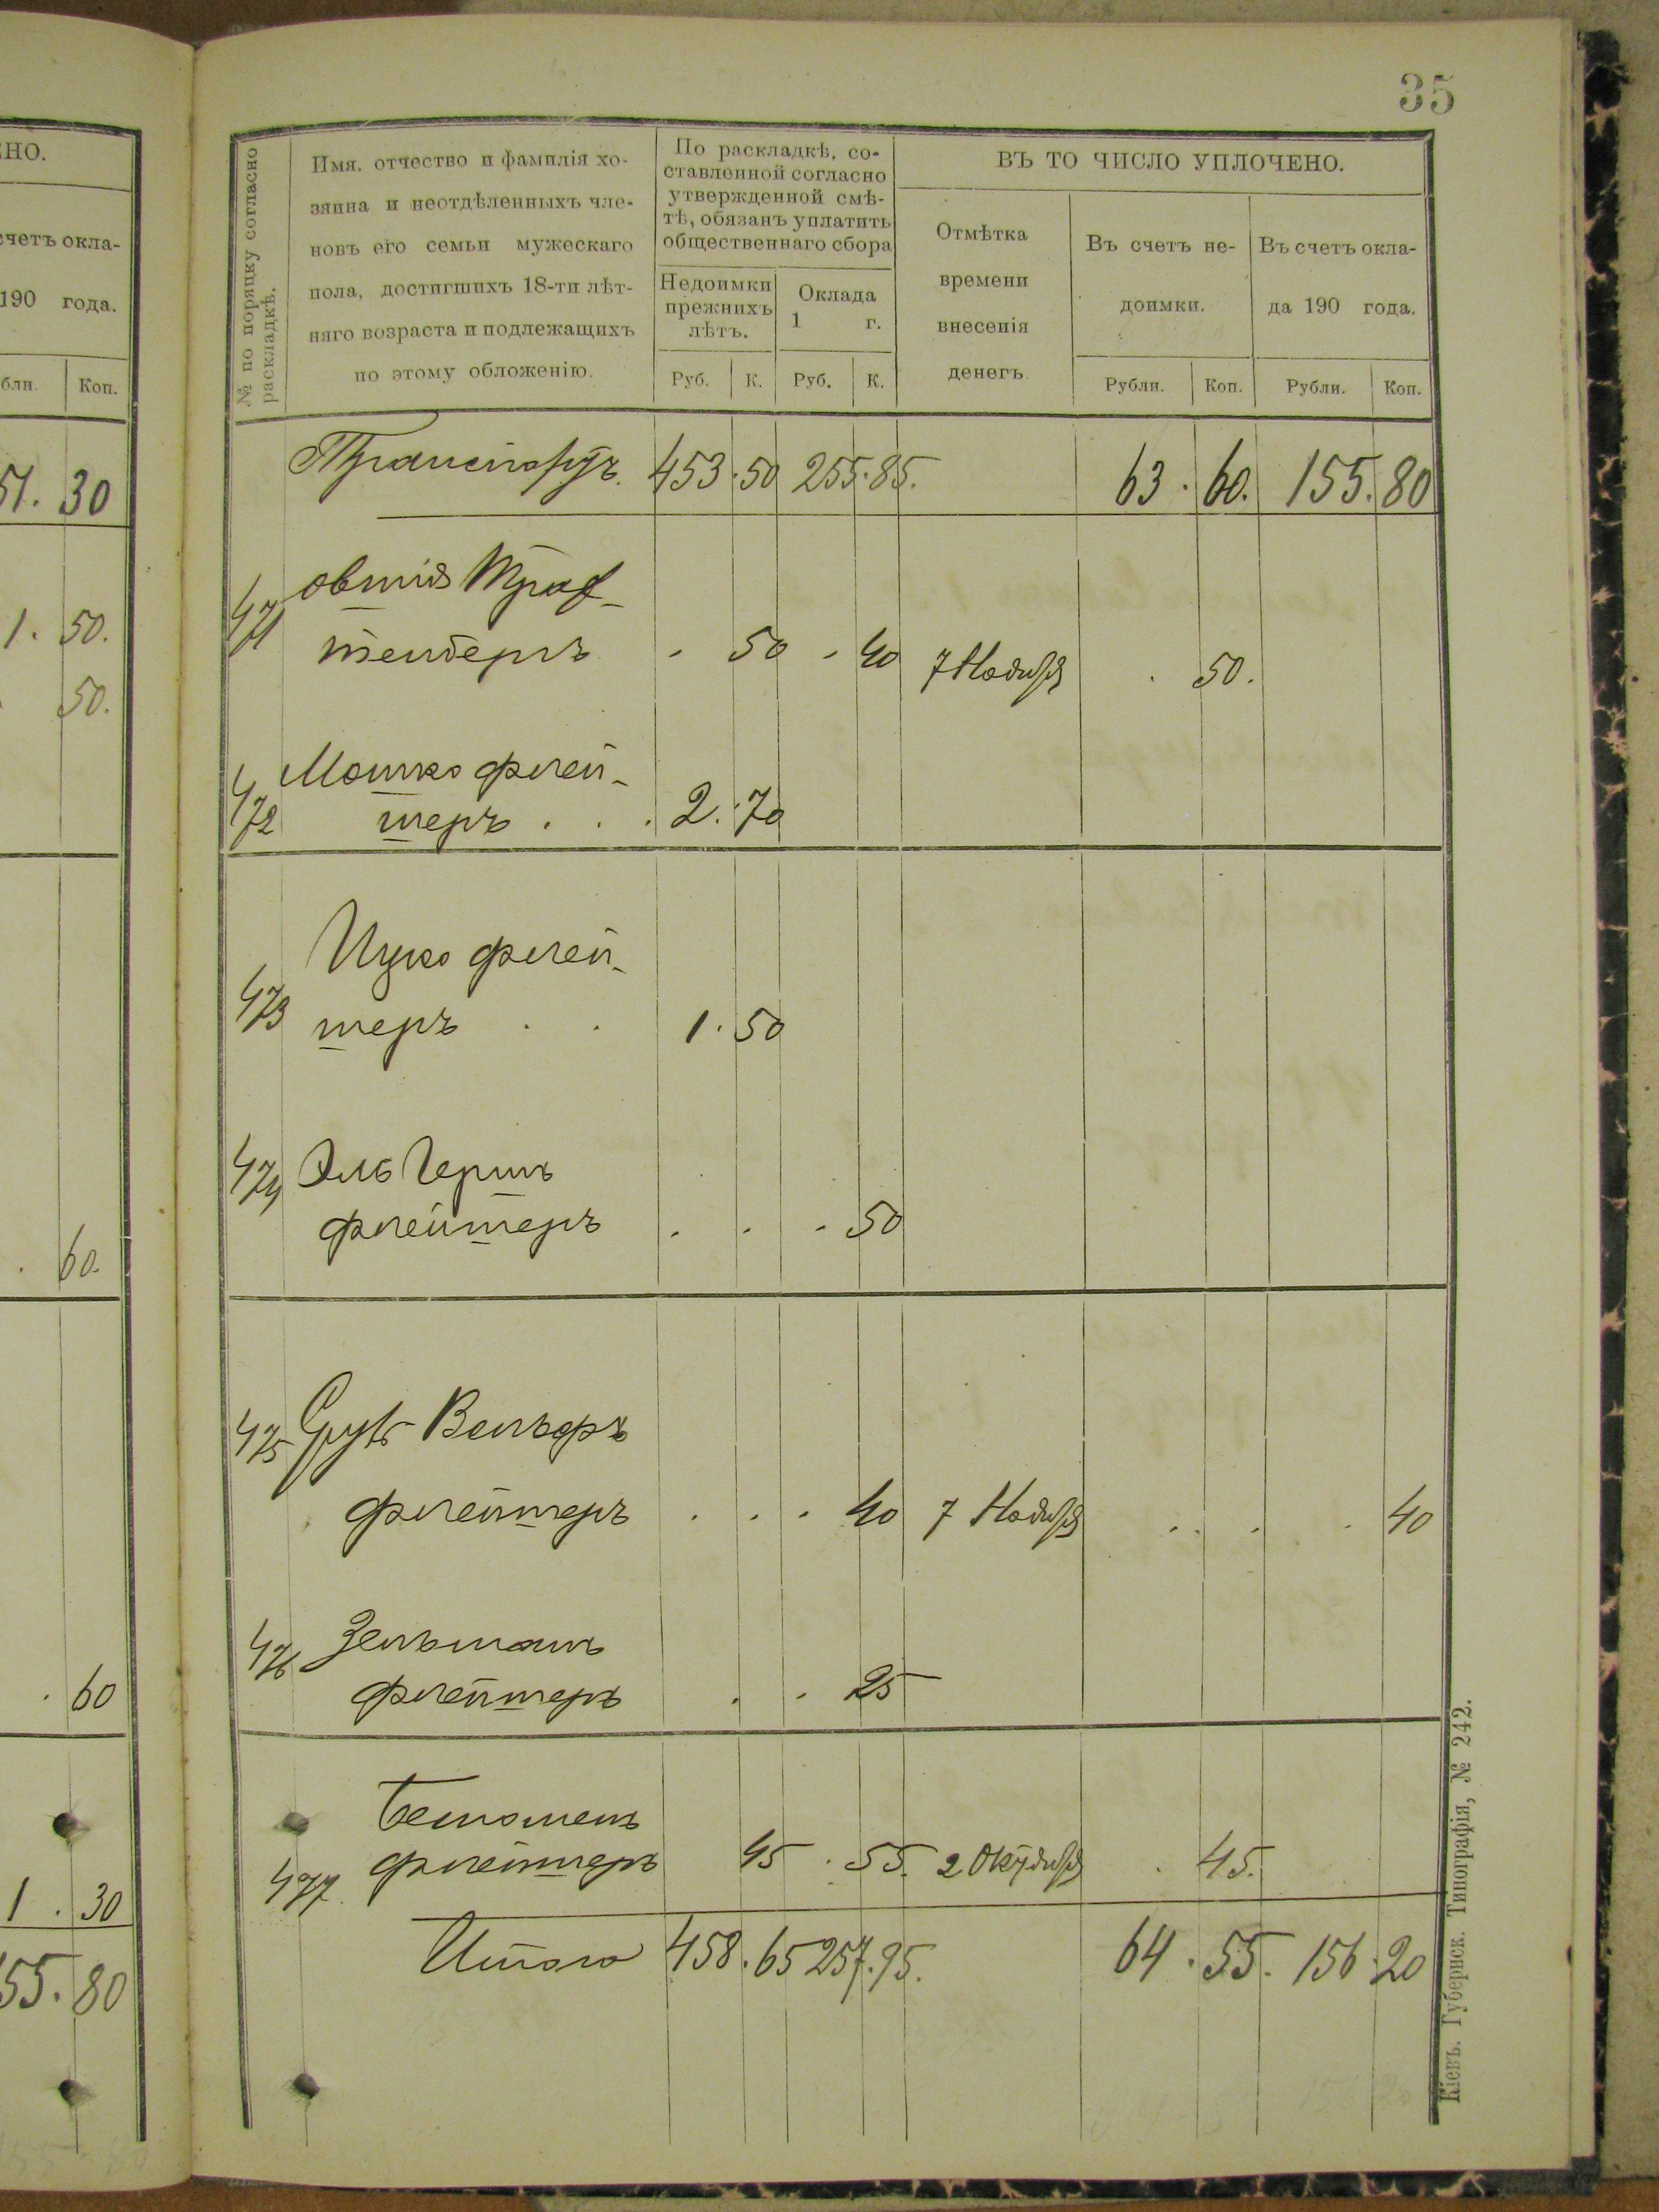 35
ЕНО.
счетъ окла-
190 года.
бли. Коп.
51. 30
1. 50.
50.
. 60.
. 60
1 . 30
55. 80
№ по порядку согласно
раскладкѣ.
Имя. отчество и фамилія хо-
зяина и неотдѣленныхъ чле-
новъ его семьи мужескаго
пола, достигшихъ 18-ти лѣт-
няго возраста и подлежащихъ
по этому обложенію.
По раскладкѣ, со-
ставленной согласно
утвержденной смѣ-
тѣ, обязанъ уплатить
общественнаго сбора
Недоимки
прежнихъ
лѣтъ.
Оклада
1 г.
Руб. К. Руб. К.
ВЪ ТО ЧИСЛО УПЛОЧЕНО.
Отмѣтка
времени
внесенія
денегъ.
Въ счетъ не-
доимки.
Въ счетъ окла-
да 190 года.
Рубли. Коп. Рубли. Коп.
Транспортъ. 453.50 255.85. 63.60. 155.80
471 Овшія Траф-
тенберъ . 50 . 40 7 Ноября . 50.
472 Мошко Флей-
шеръ . . . 2.70
473 Ицко Флей-
шеръ . . 1.50
474 Эль Гершъ
Флейшеръ . . . 50
475 Сруль Вольфъ
Флейшеръ . . . 40 7 Ноября . . . 40
476 Зельманъ
Флейшеръ . . 25
477. Бенюменъ
Флейшеръ 45 . 55. 2 Октября . 45.
Итого 458.65 257.95. 64.55. 156.20
Кіевъ. Губернск. Типографія, № 242.